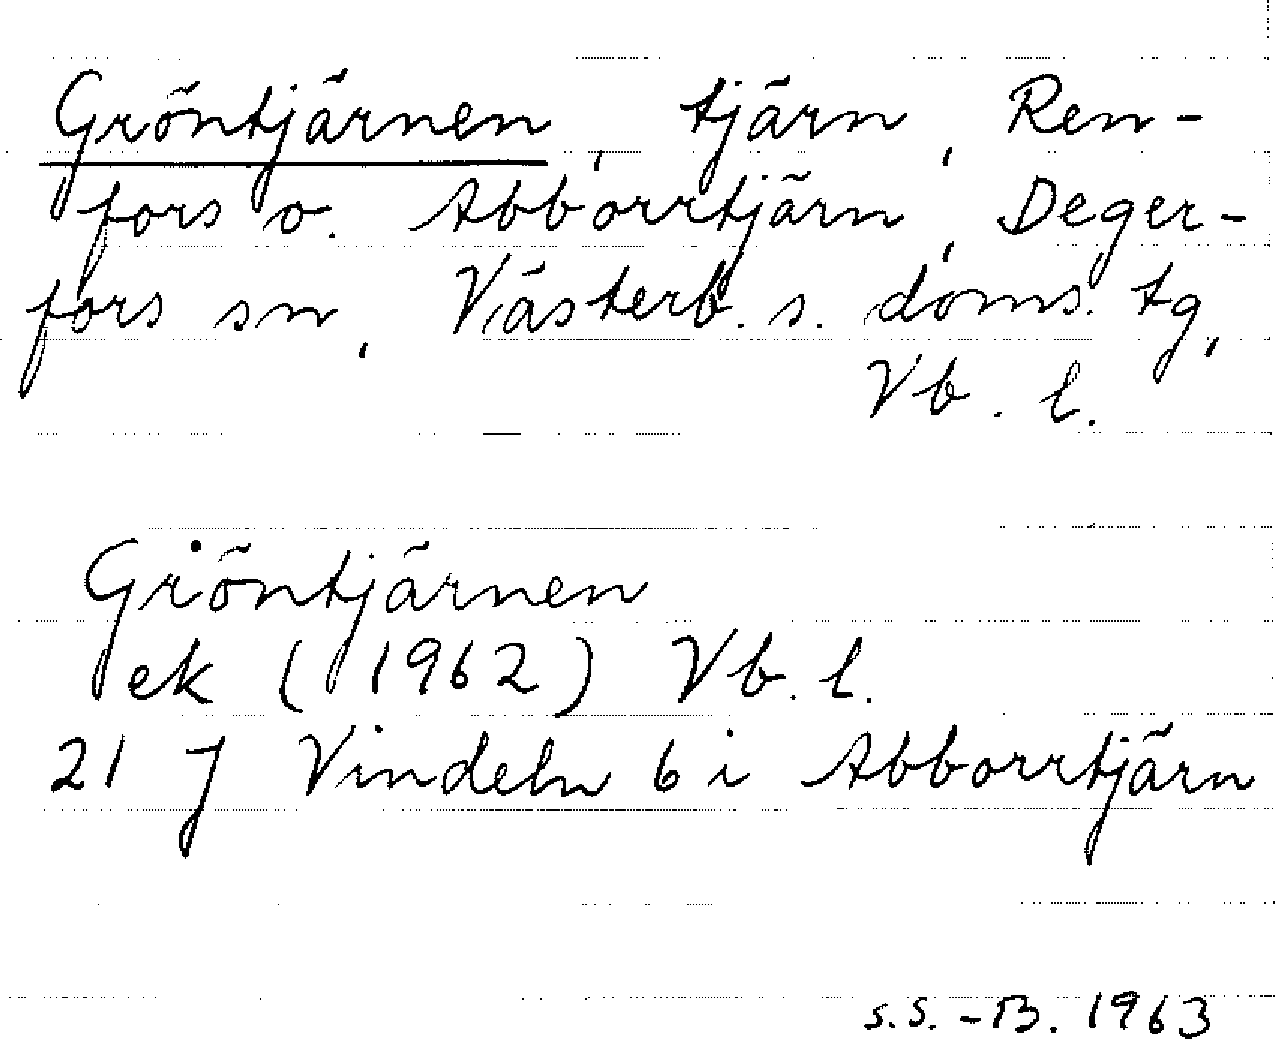 Gröntjärnen, tjärn, Ren-
fors o. Abborrtjärn, Deger-
fors sn, Västerb. s. doms. tg,
Vb. l.
Gröntjärnen
ek (1962) Vb. l.
21 J Vindeln 6 i Abborrtjärn
s.S.-B. 1963